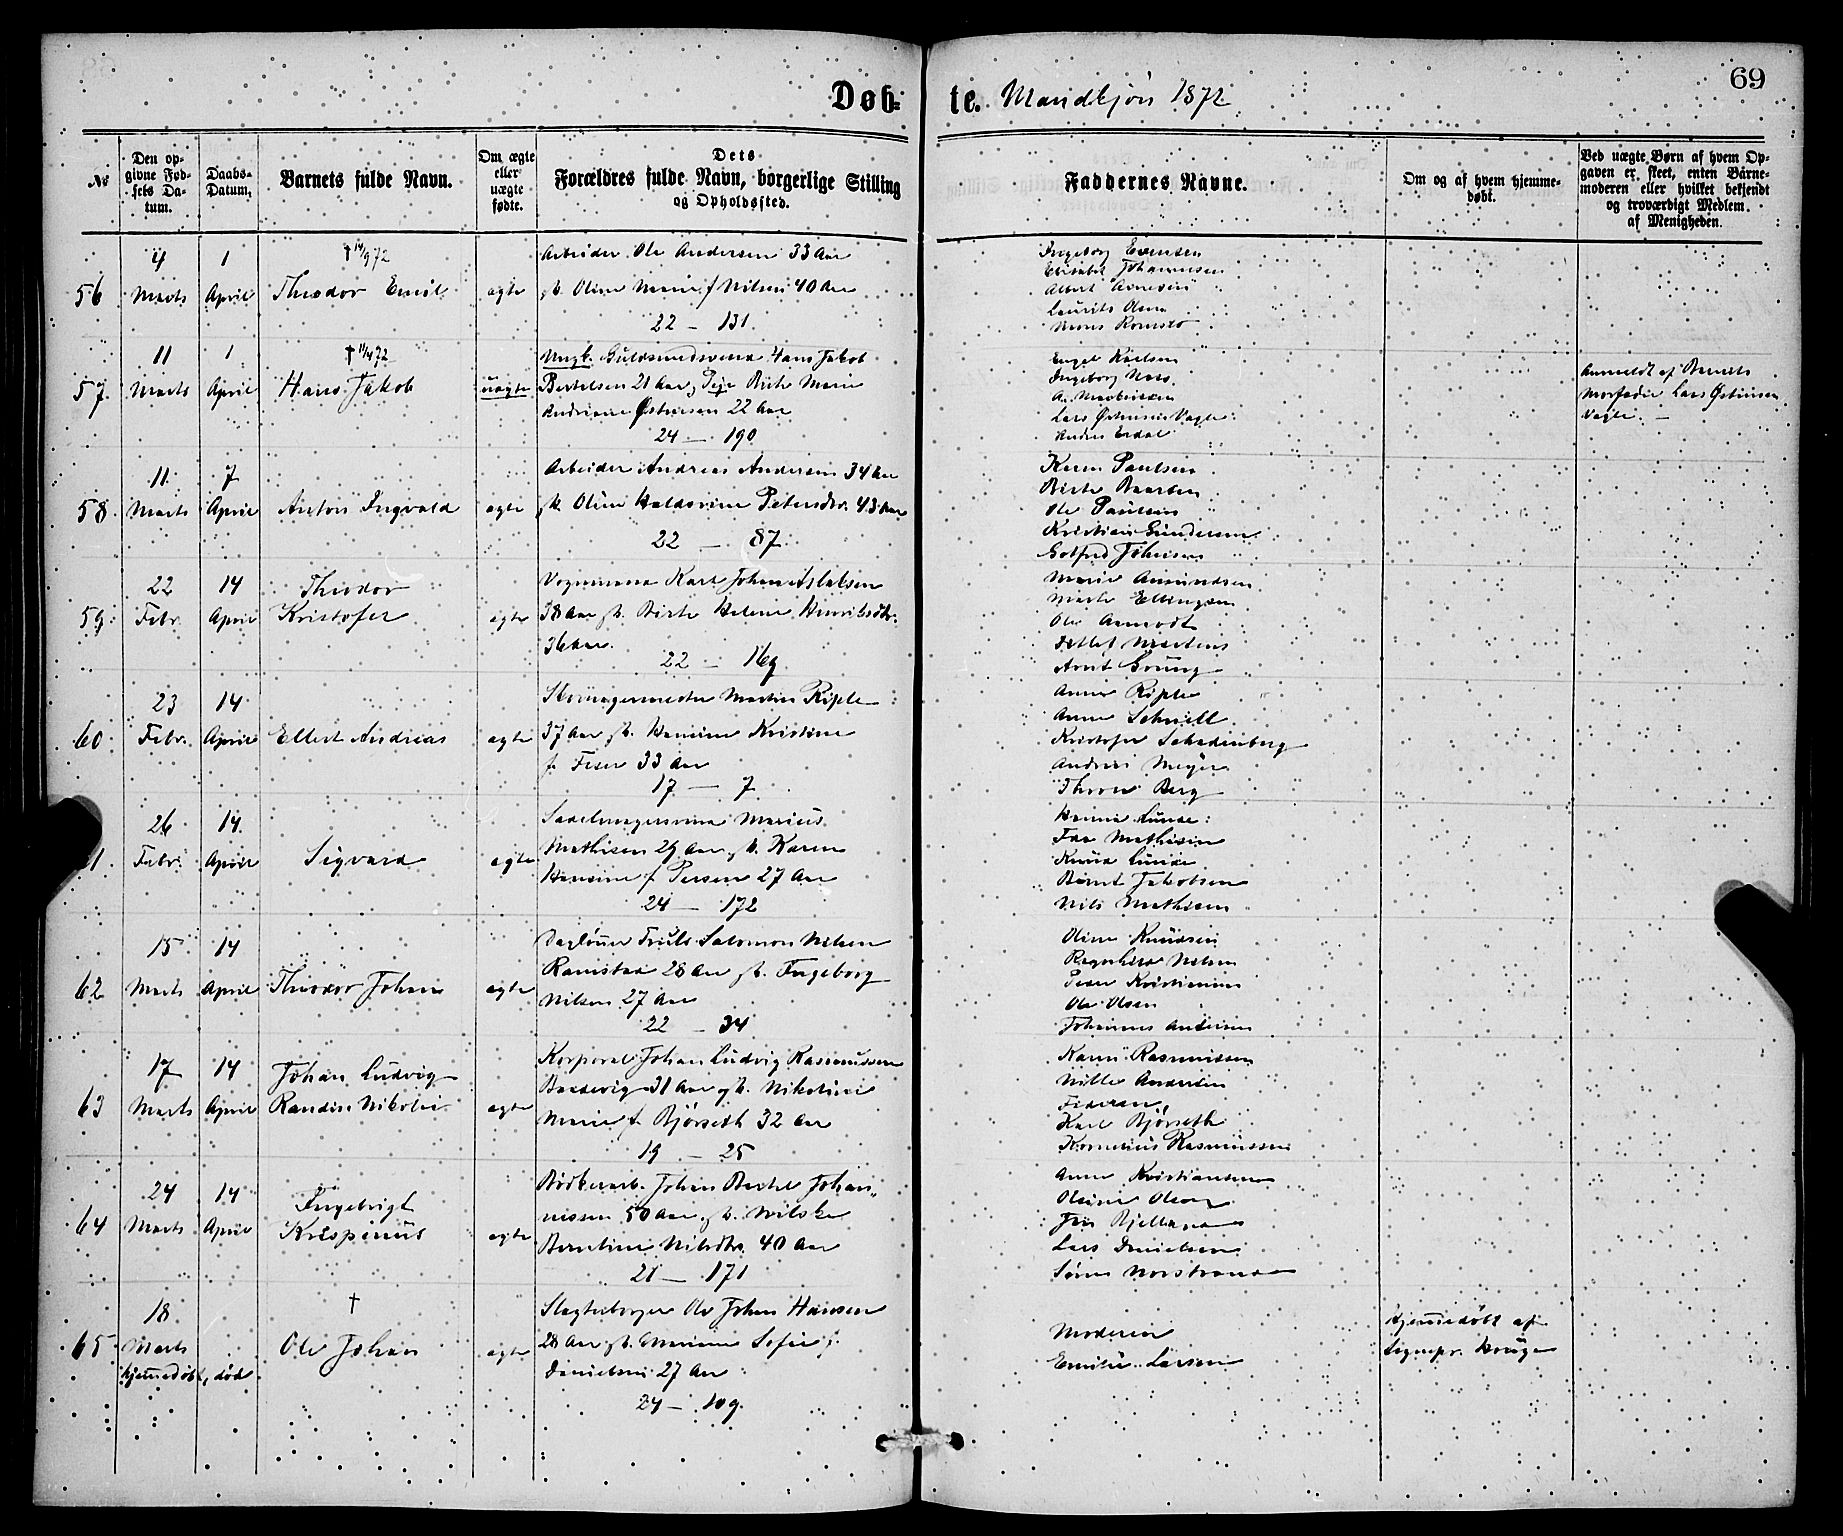 69
Døb-te. Mandkjøn 1872
№
Den opgivne Fødsels Datum.
Daabs-Datum.
Barnets fulde Navn.
Om ægte eller uægte fødte.
Dets Forældres fulde Navn, borgerlige Stilling og Opholdssted.
Faddernes Navne.
Om og af hvem hjemmedøbt.
Ved uægte Børn af hvem Opgaven er skeet, enten Barnemoderen eller hvilket bekjendt og troværdigt Medlem af Menigheden.
56
4 Marts
1 April
† 14/9 72
Theodor Emil
ægte
Arbeider Ole Andersen 33 Aar
Oline Marie f Nilsen 40 Aar
22 — 131.
Ingeborg Evensen
Elisabet Johannesen
Laurits Olsen
57.
11 Marts
1 April
† 11/4 72
Hans Jakob
uægte
Ungk. Guldsmedsvend Hans Jakob
Bertelsen 21 Aar, Pige Birte Marie
Andriane Østensen 22 Aar
24 — 190
Engel Karlsen
Ingeborg Naso
Lars Østensen Vagle
Andres Erdal
Anmeldt af Barnets
Morfader Lars Østensen
Vagle. —
58.
11. Marts
7 April
Anton Ingvald
ægte
Arbeider Andreas Andersen 34 Aar
Oline Haldorine Petersdtr. 43 Aar
22 — 87.
Karen Paulsen
Birte Baardsen
Ole Paulsen
Kristian Gundersen
Gotfred Johnsen
59.
22 Febr.
14 April
Theodor
Kristofer
ægte
Vognmand Karl Johan Aslaksen
38 Aar Birte Helene Henriksdtr.
36 Aar.
22 — 169.
Marie Amundsen
Marta Ellingsen
Ole Aamodt
Detlef Martens
Arnt Grung
60.
23 Febr.
14 April
Ellert Andreas
ægte
Skomagermester Martin Riple
37 Aar Hansine Kristine
33 Aar
17 — 7
Anna Riple
Anne Schnell
Kristofer Schadenberg
Andreas Meyer
Thore Berg
1.
26 Febr.
14. April
Sigvard
ægte
Sadelmagersvend Marius
Mathisen 29 Aar Karen
Hansine f Persen 27 Aar
24 — 172
Hanna Lunde
Mathisen
Knud Lunde
Bernt Jakobsen
Nils Mathisen
62
15 Marts
14 April
Theodor Johan
ægte
Dagløner Truls Salomon Nilsen
Ramstad 28 Aar Ingeborg
Nilsen 27 Aar
22 — 34
Oline Knudsen
Ragnhild Nilsen
Peder Kristiansen
Ole Olsen
Johannes Andersen
63
17 Marts
14 April
Johan Ludvig
Randin Nikolai
ægte
Korporal Johan Ludvig Rasmussen
31 Aar Nikoline
Marie f. Bjørseth 32 Aar
19 — 25
Karen Rasmussen
Nille Andersen
Pedersen
Karl Bjørseth
Kornelius Rasmussen
64
24 Marts
14 April
Ingebrigt
Krispinus
ægte
Bødkerarb. Johan Bertel Johan-
nissen 50 Aar
Berntine Nilsdtr. 40 Aar
21 — 171
Anne Kristiansen
Olsen
Bjelland
Lars Danielsen
Søren Norstrand
65
18 Marts
hjemmedøbt, død
†
Ole Johan
ægte
Slagterborger Ole Johan Hansen
28 Aar Mariane Sofie f.
Danielsen 27 Aar
24 — 109.
Moderen
Emilie Larsen
Hjemmedøbt af
Sognepr. Houge